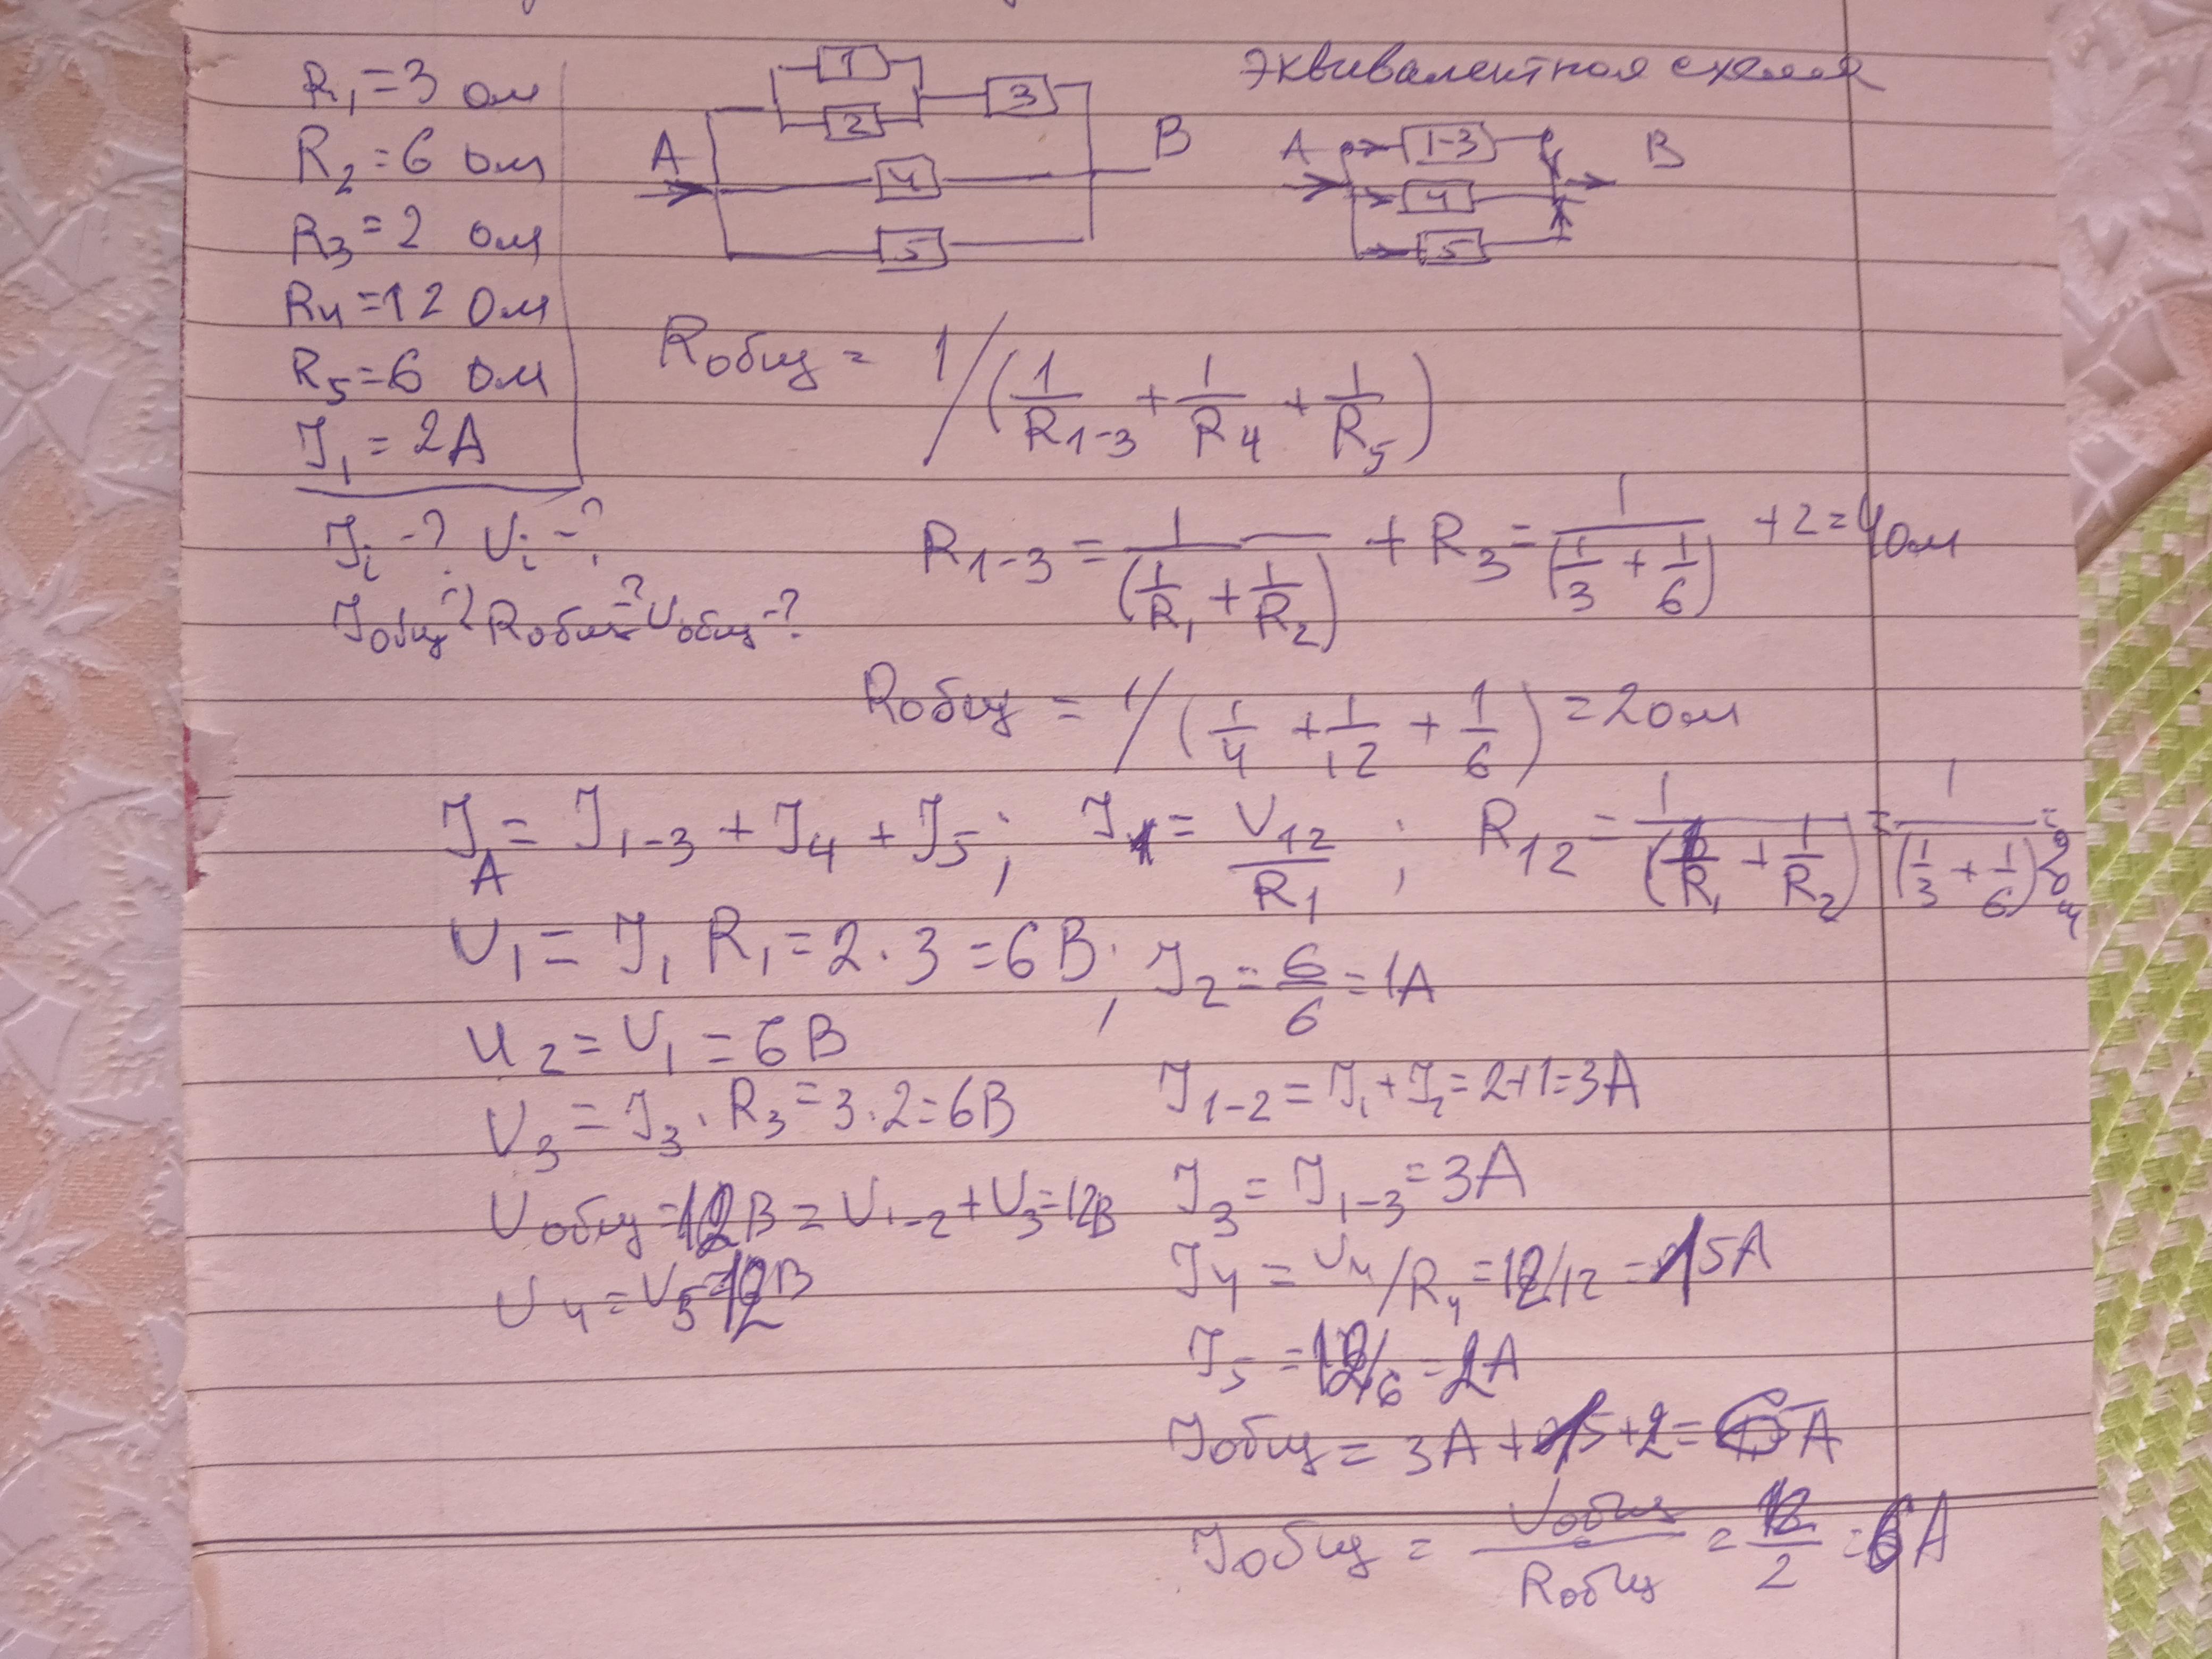 R₁ = 3 ом
R₂ = 6 ом
R₃ = 2 ом
R₄ = 12 Ом
R₅ = 6 Ом
J₁ = 2А
Jᵢ - ? Uᵢ - ?
Jобщ - ? Rобщ - ? Uобщ - ?
1
2
3
A
4
B
5
Эквивалентная схема
A
1-3
B
4
5
Rобщ = 1/(1/R₁₋₃ + 1/R₄ + 1/R₅)
R₁₋₃ = 1/(1/R₁ + 1/R₂) + R₃ = 1/(1/3 + 1/6) + 2 = 4 ом
Rобщ = 1/(1/4 + 1/12 + 1/6) = 2 ом
J_A = J₁₋₃ + J₄ + J₅; J₁ = U₁₂/R₁; R₁₂ = 1/(1/R₁ + 1/R₂) = 1/(1/3 + 1/6) = 2 ом
U₁ = J₁ R₁ = 2 · 3 = 6 В; J₂ = 6/6 = 1А
U₂ = U₁ = 6 В
J₁₋₂ = J₁ + J₂ = 2+1 = 3 А
U₃ = J₃ · R₃ = 3 · 2 = 6 В
J₃ = J₁₋₃ = 3 А
Uобщ = 12 В = U₁₋₂ + U₃ = 12 В
J₄ = U₄/R₄ = 12/12 =
U₄ = U₅ = 12 В
J₅ = 12/6 = 2 А
Jобщ = 3 А + + 2 = А
Jобщ = Uобщ/Rобщ = 12/2 = 6 А